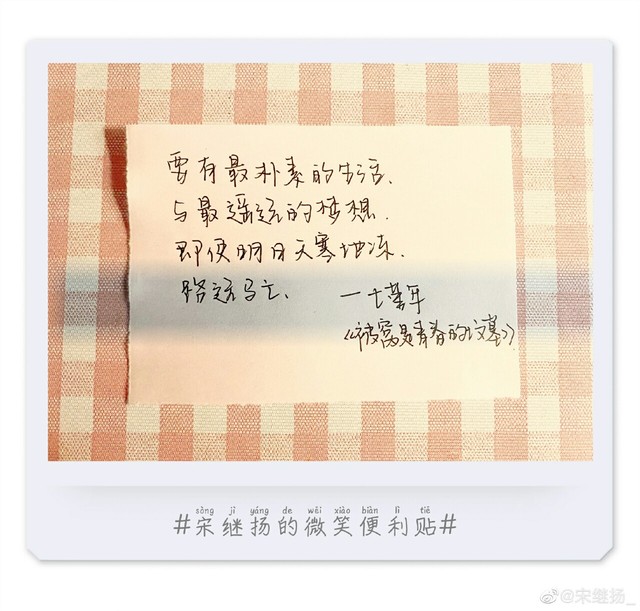 要有最朴素的生活、
与最遥远的梦想.
即使明日天寒地冻.
路远马亡、
一七堇年
《被窝是青春的坟墓》
sòng jì yáng de wēi xiào biàn lì tiē
#宋继扬的微笑便利贴#
@宋继扬_